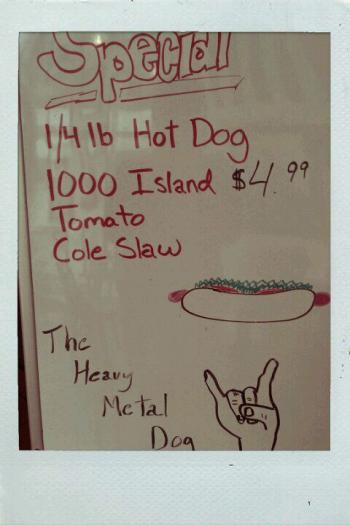 Special
1/4 lb Hot Dog
1000 Island $4.99
Tomato
Cole Slaw
The
Heavy
Metal
Dog